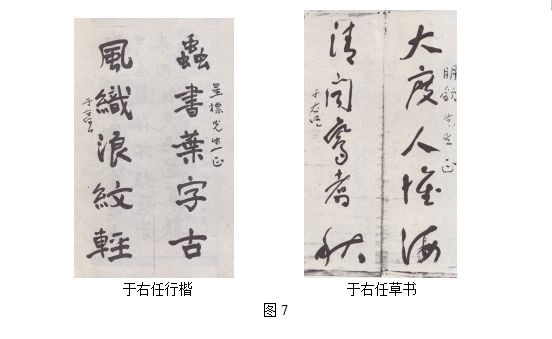 蟲書葉字古
先生正
風織浪紋輕
于右任
大度人惟海
明欽先生正
清聞秋
于右任
于右任行楷
于右任草书
图 7